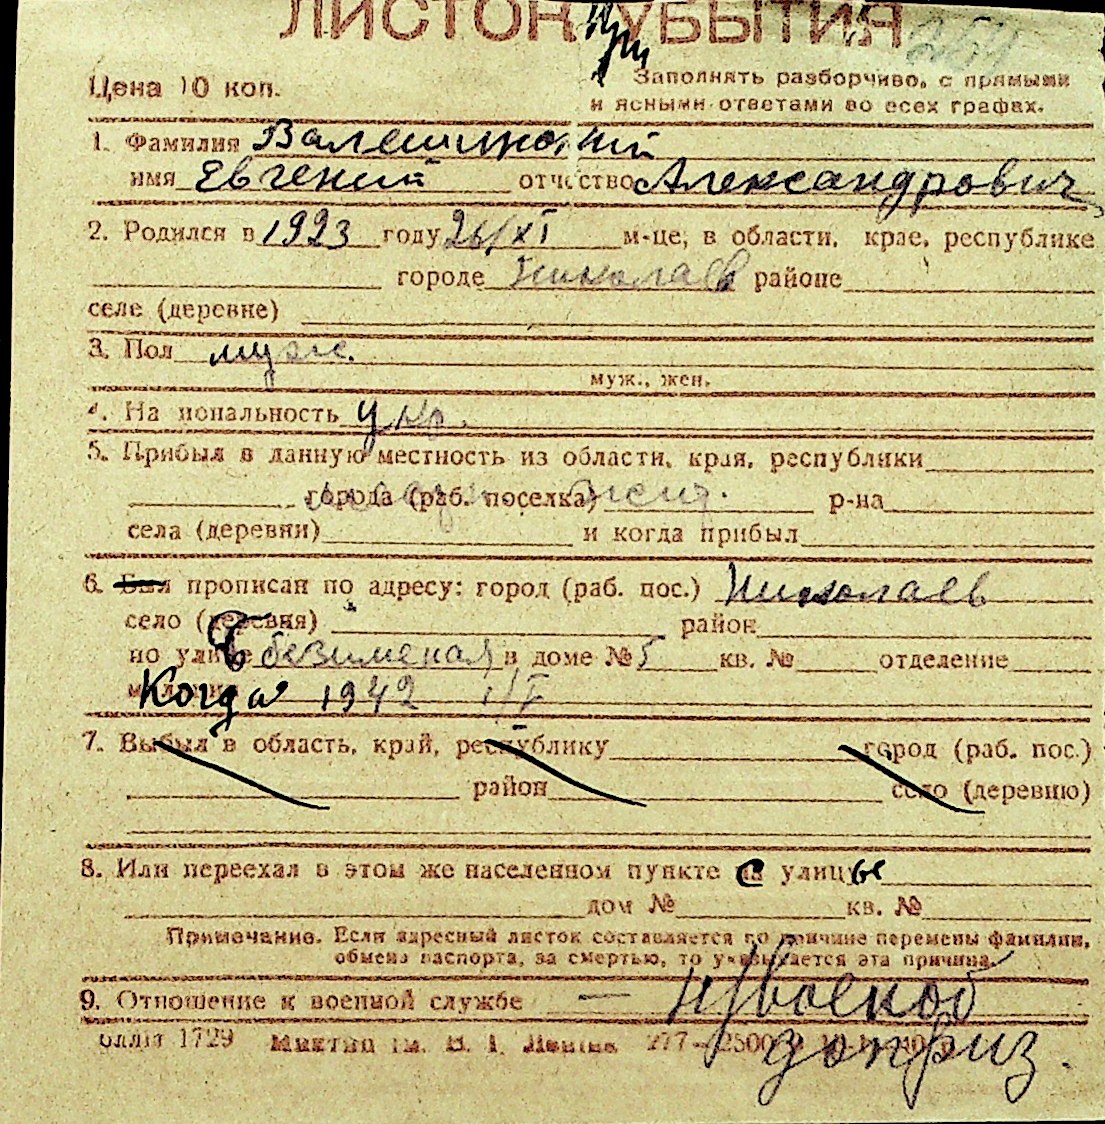 ЛИСТОК УБЫТИЯ
Цена 10 коп.
Заполнять разборчиво, с прямыми
и ясными ответами во всех графах.
1. Фамилия
имя Евгений отчество Александрович
2. Родился в 1923 году 26/XI м-це, в области, крае, республике
городе Николаев районе
селе (деревне)
3. Пол муж.
муж., жен.
4. Национальность укр.
5. Прибыл в данную местность из области, края, республики
города (раб. поселка) жит. р-на
села (деревни) и когда прибыл
6. Был прописан по адресу: город (раб. пос.) Николаев
село (деревня) район
по улице безименая в доме № 5 кв. № отделение
Когда 1942 1/V
7. Выбыл в область, край, республику город (раб. пос.)
район село (деревню)
8. Или переехал в этом же населенном пункте с улицы
дом № кв. №
Примечание. Если адресный листок составляется по причине перемены фамилии,
обмена паспорта, за смертью, то указывается эта причина.
9. Отношение к военной службе — н/военооб
доприз.
1729 им. В. І. Леніна